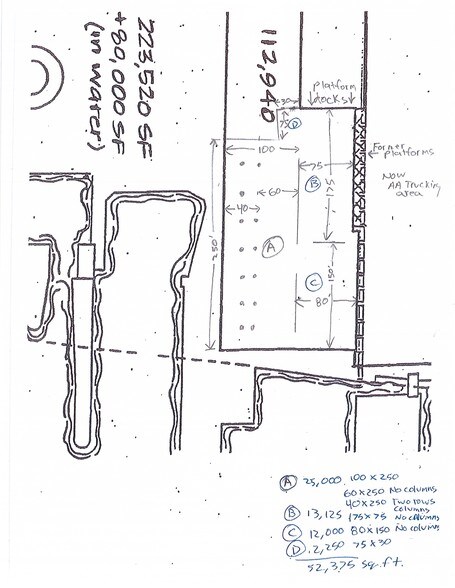 223,520 SF
+80,000 SF
(in water)
112,940
platform
docks
30
75
D
100
75
Former
platforms
Now
AA Trucking
area
B
175
60
40
250'
A
150'
C
80'
A 25,000 100 x 250
60 x 250 No columns
40 x 250 Two rows
columns
B 13,125 175 x 75 No columns
C 12,000 80 x 150 No columns
D 2,250 75 x 30
52,375 sq. ft.